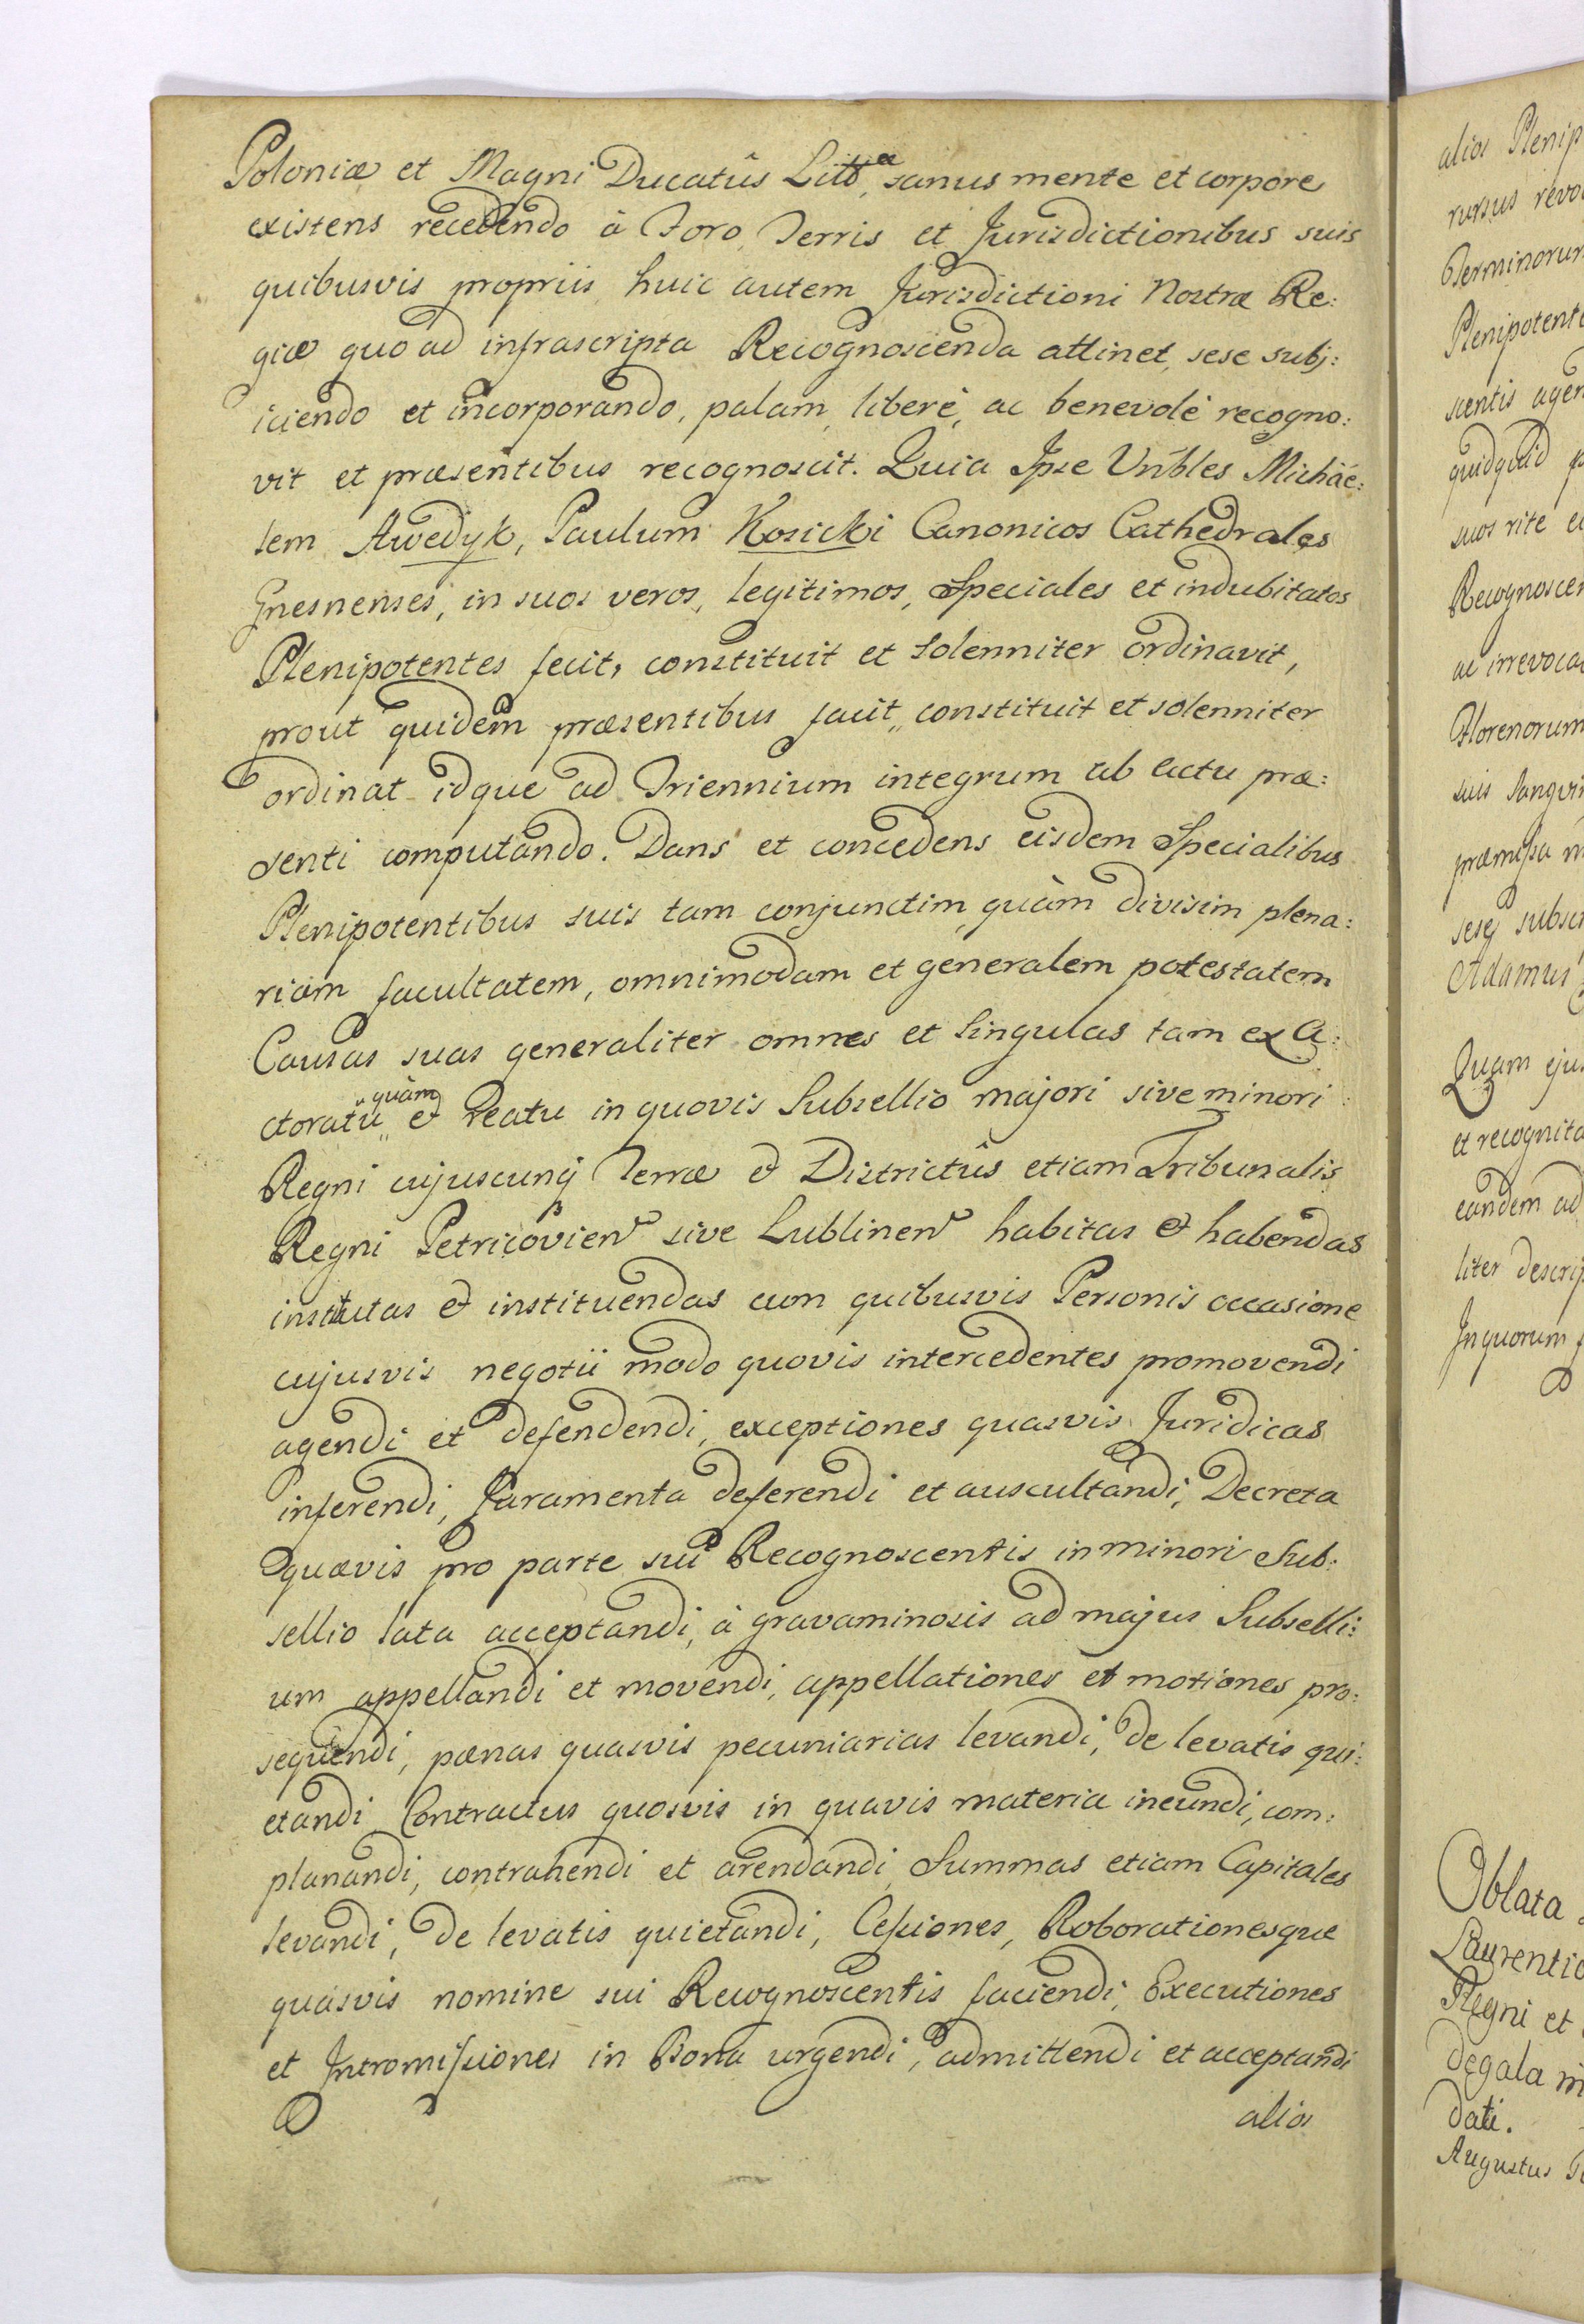 Poloniæ et Magni Ducatûs Litt̃æ, sanus mente et corpore
existens recedendo à Foro, Terris et Jurisdictionibus suis
quibusvis propriis huic autem Jurisdictioni Nostræ Re:
giæ quo ad infrascripta Recognoscenda attinet, sese subj:
iciendo et incorporando, palam, liberè, ac benevolè recogno:
vit et præsentibus recognoscit. Quia Ipse Vnbles Michäe:
lem Awedyk, Paulum Kosicki Canonicos Cathedrales
Gnesnenses, in suos veros, legitimos, Speciales et indubitatos
Plenipotentes fecit, constituit et solenniter ordinavit,
prout quidem præsentibus facit, constituit et solenniter
ordinat idque ad Triennium integrum ab actu præ:
senti computando. Dans et concedens eisdem Specialibus
Plenipotentibus suis tam conjunctim, quàm divisim plena:
riam facultatem, omnimodam et generalem potestatem
Causas suas generaliter omnes et singulas tam ex A:
ctoratu quàm et Reatu in quovis Subsellio majori sive minori
Regni cujuscunq; Terræ et Districtûs etiam Tribunalis
Regni Petricovien sive Lublinen habitas et habendas
institutas et instituendas cum quibusvis Personis occasione
cujusvis negotii modo quovis intercedentes promovendi
agendi et defendendi, exceptiones quasvis Juridicas
inferendi, Juramenta deferendi et auscultandi, Decreta
quævis pro parte sui Recognoscentis in minori Sub:
sellio lata acceptandi, à gravaminosis ad majus Subselli:
um appellandi et movendi, appellationes et motiones pro:
sequendi, pænas quasvis pecuniarias levandi, de levatis qui:
etandi Contractus quosvis in quavis materia ineundi, com:
planandi, contrahendi et arendandi, Summas etiam Capitales
levandi, de levatis quietandi, Cessiones, Roborationesque
quasvis nomine sui Recognoscentis faciendi, Executiones
et Intromissiones in Bona urgendi, admittendi et acceptandi
alios
alios Plenip
rursus revo
Terminorum
Plenipotent
scentis agen
quidquid p
suos rite e
Recognoscen
ac irrevoca
Florenorum
suis Sangvi
præmissa m
seseq; subsc
Adamus
Quam eju
et recognita
eandem ad
liter descrip
In quorum f
Oblata
Laurentio
Regni et
Degala m
dati.
Augustus